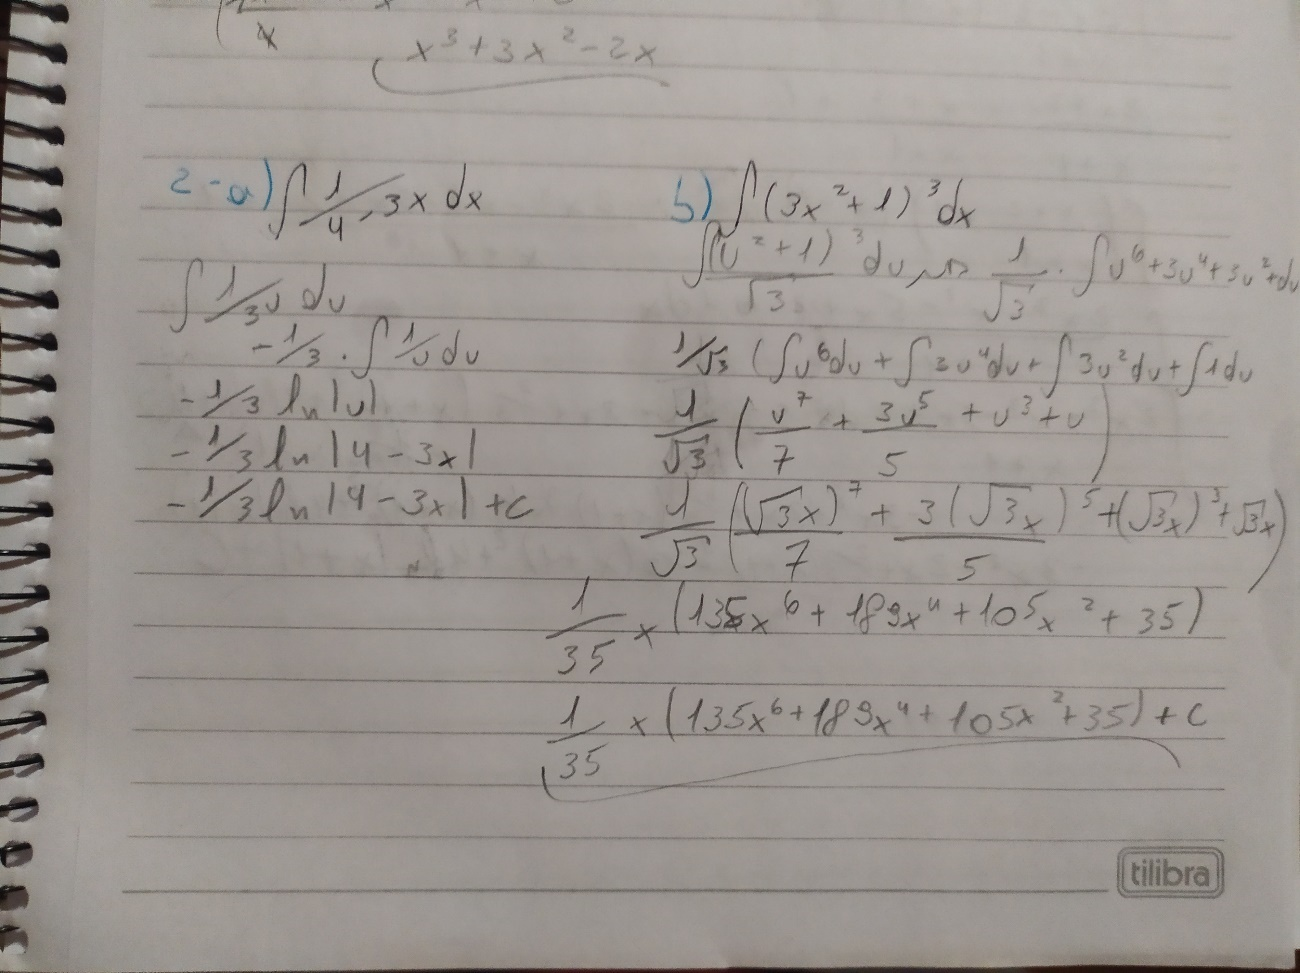 x³+3x²-2x
2-a) ∫ 1/4-3x dx
∫ 1/3u du
-1/3 . ∫ 1/u du
-1/3 ln |u|
-1/3 ln |4-3x|
-1/3 ln |4-3x| +c
b) ∫ (3x²+1)³ dx
∫ (u²+1)³/√3 du ~> 1/√3 . ∫ u⁶+3u⁴+3u²+du
1/√3 (∫u⁶du + ∫3u⁴du + ∫3u²du + ∫1du
1/√3 (u⁷/7 + 3u⁵/5 + u³ + u)
1/√3 ((√3x)⁷/7 + 3(√3x)⁵/5 + (√3x)³ + √3x)
1/35 x (135x⁶ + 189x⁴ + 105x² + 35)
1/35 x (135x⁶ + 189x⁴ + 105x² + 35) + c
tilibra